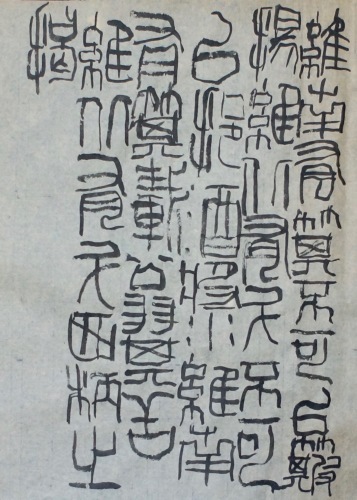 維南有箕不可以簸
揚維北有斗不可
以挹酒漿維南
有箕載翕其舌
維北有斗西柄之
揭